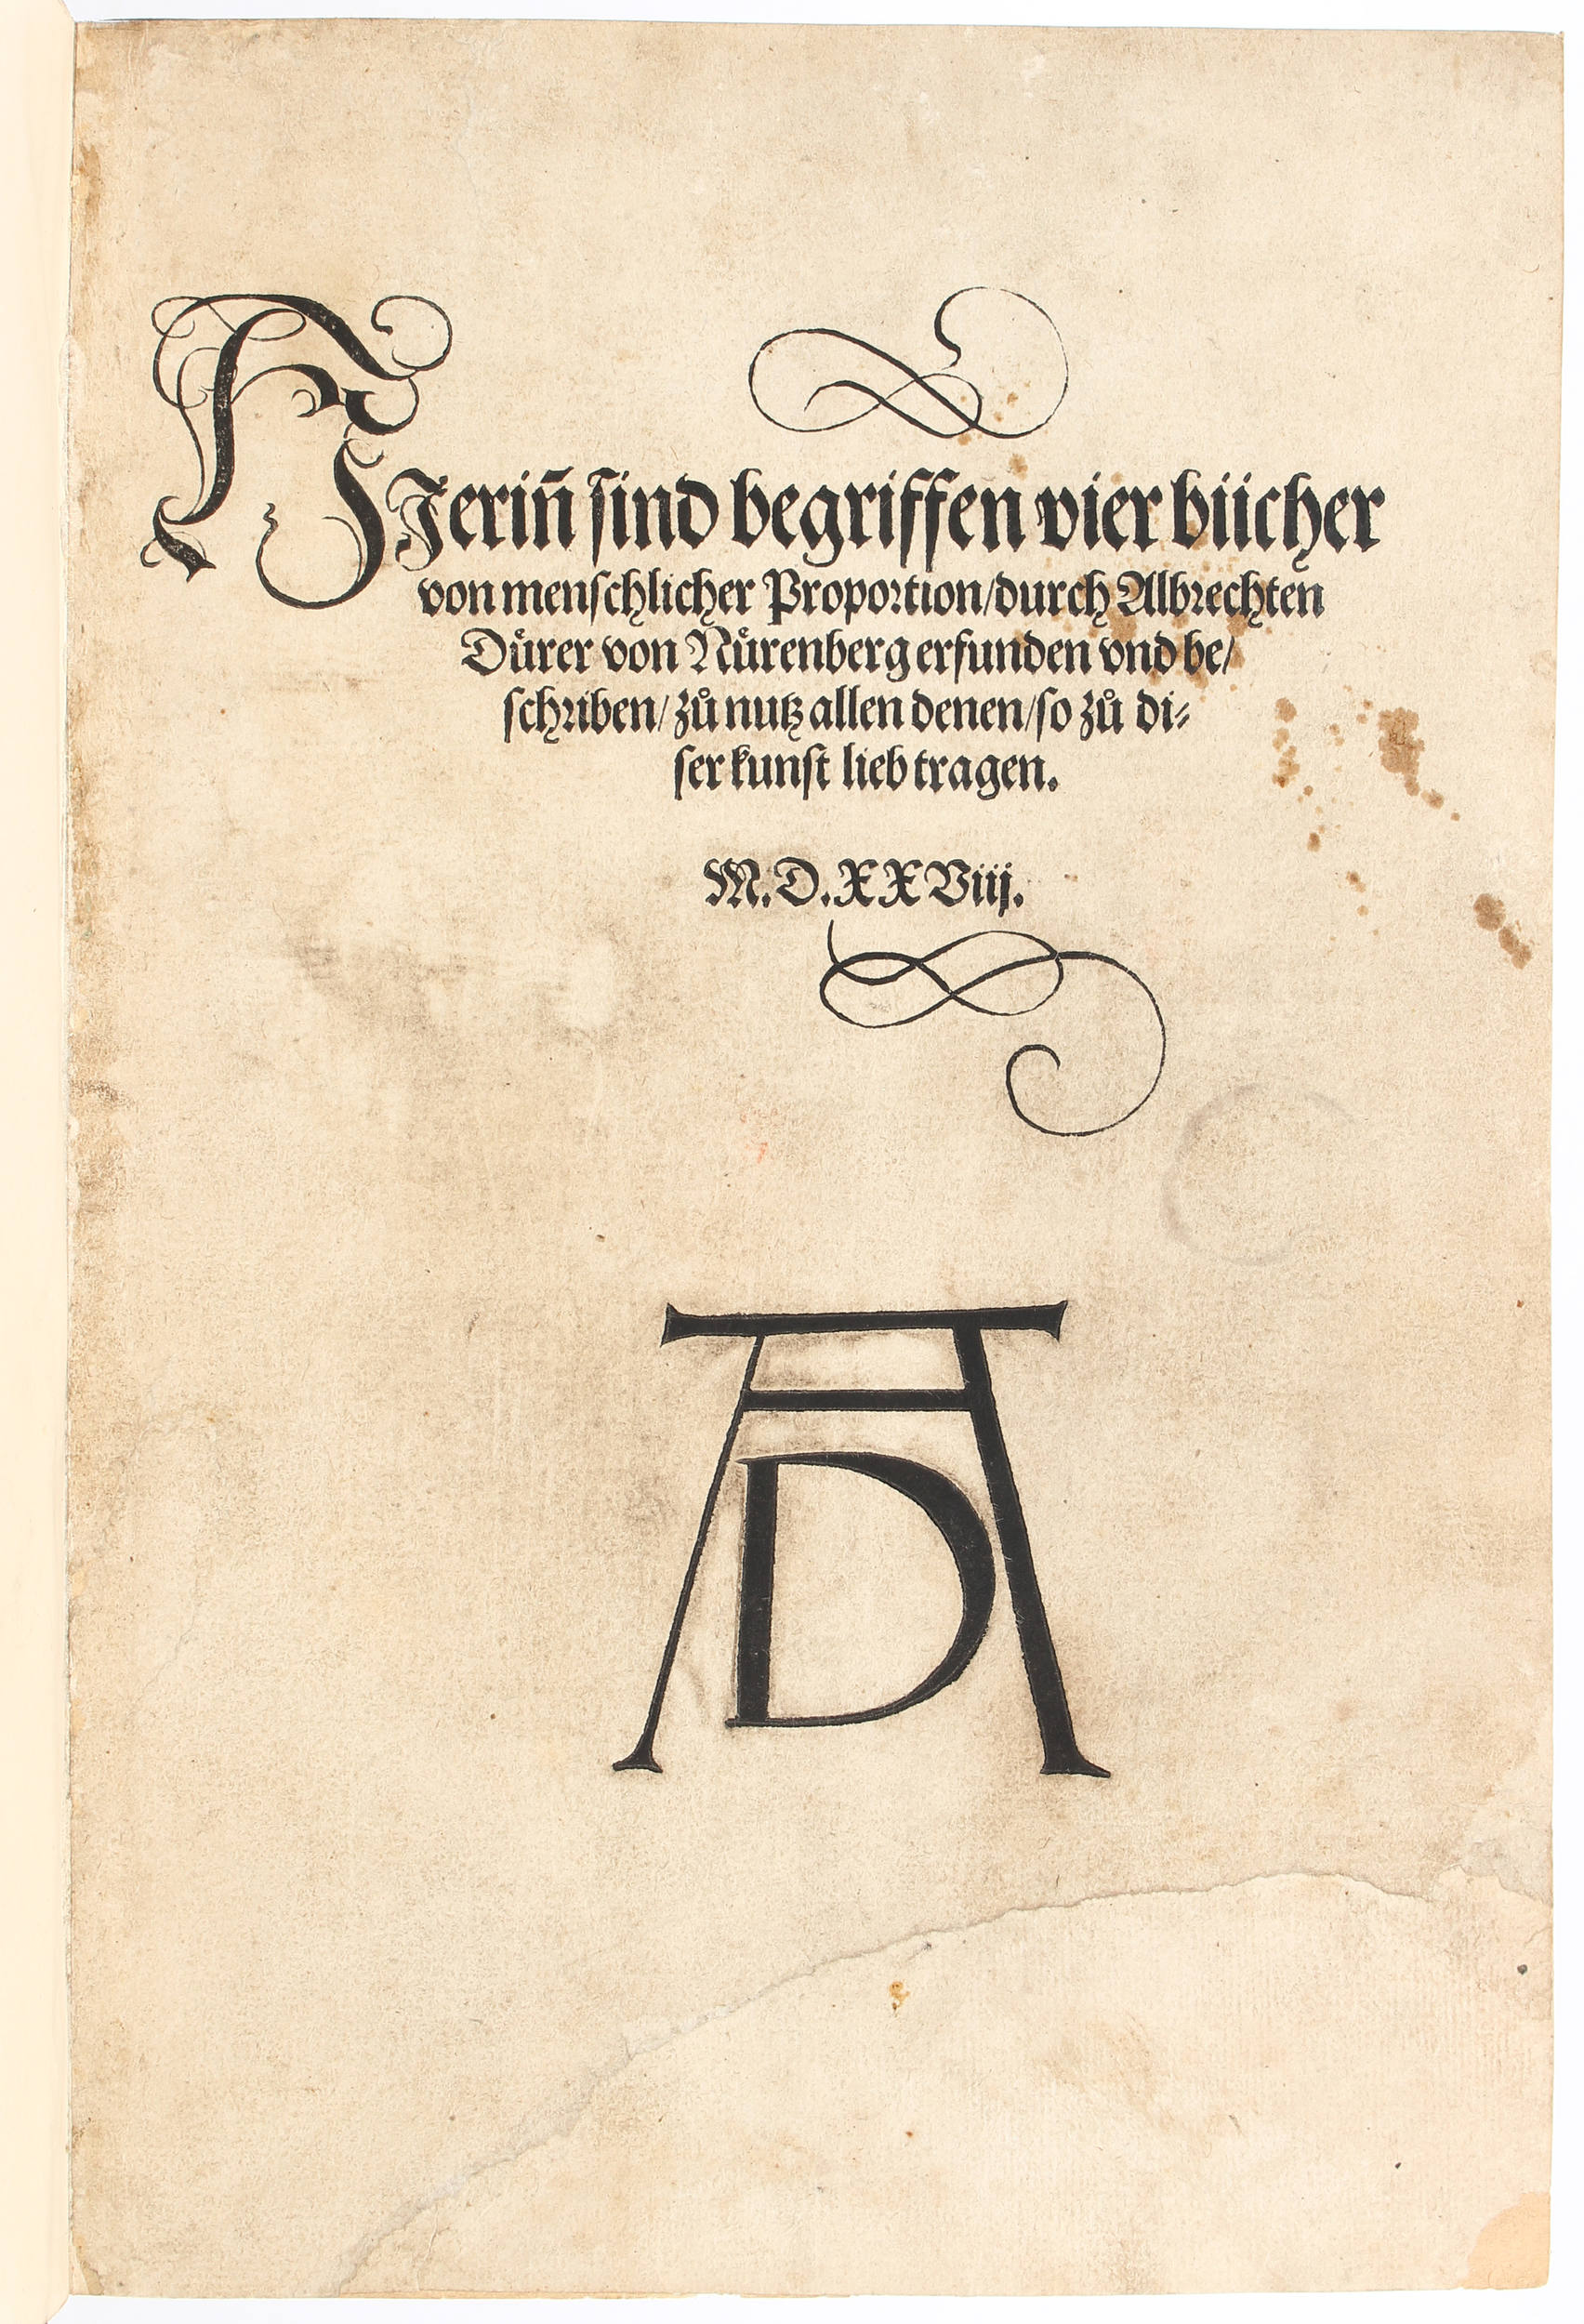 HJerin̄ sind begriffen vier bücher
von menschlicher Proportion/durch Albrechten
Důrer von Nůrenberg erfunden vnd be/
schriben/zů nutz allen denen/so zů di⸗
ser kunst lieb tragen.
M.D.XXViij.
AD